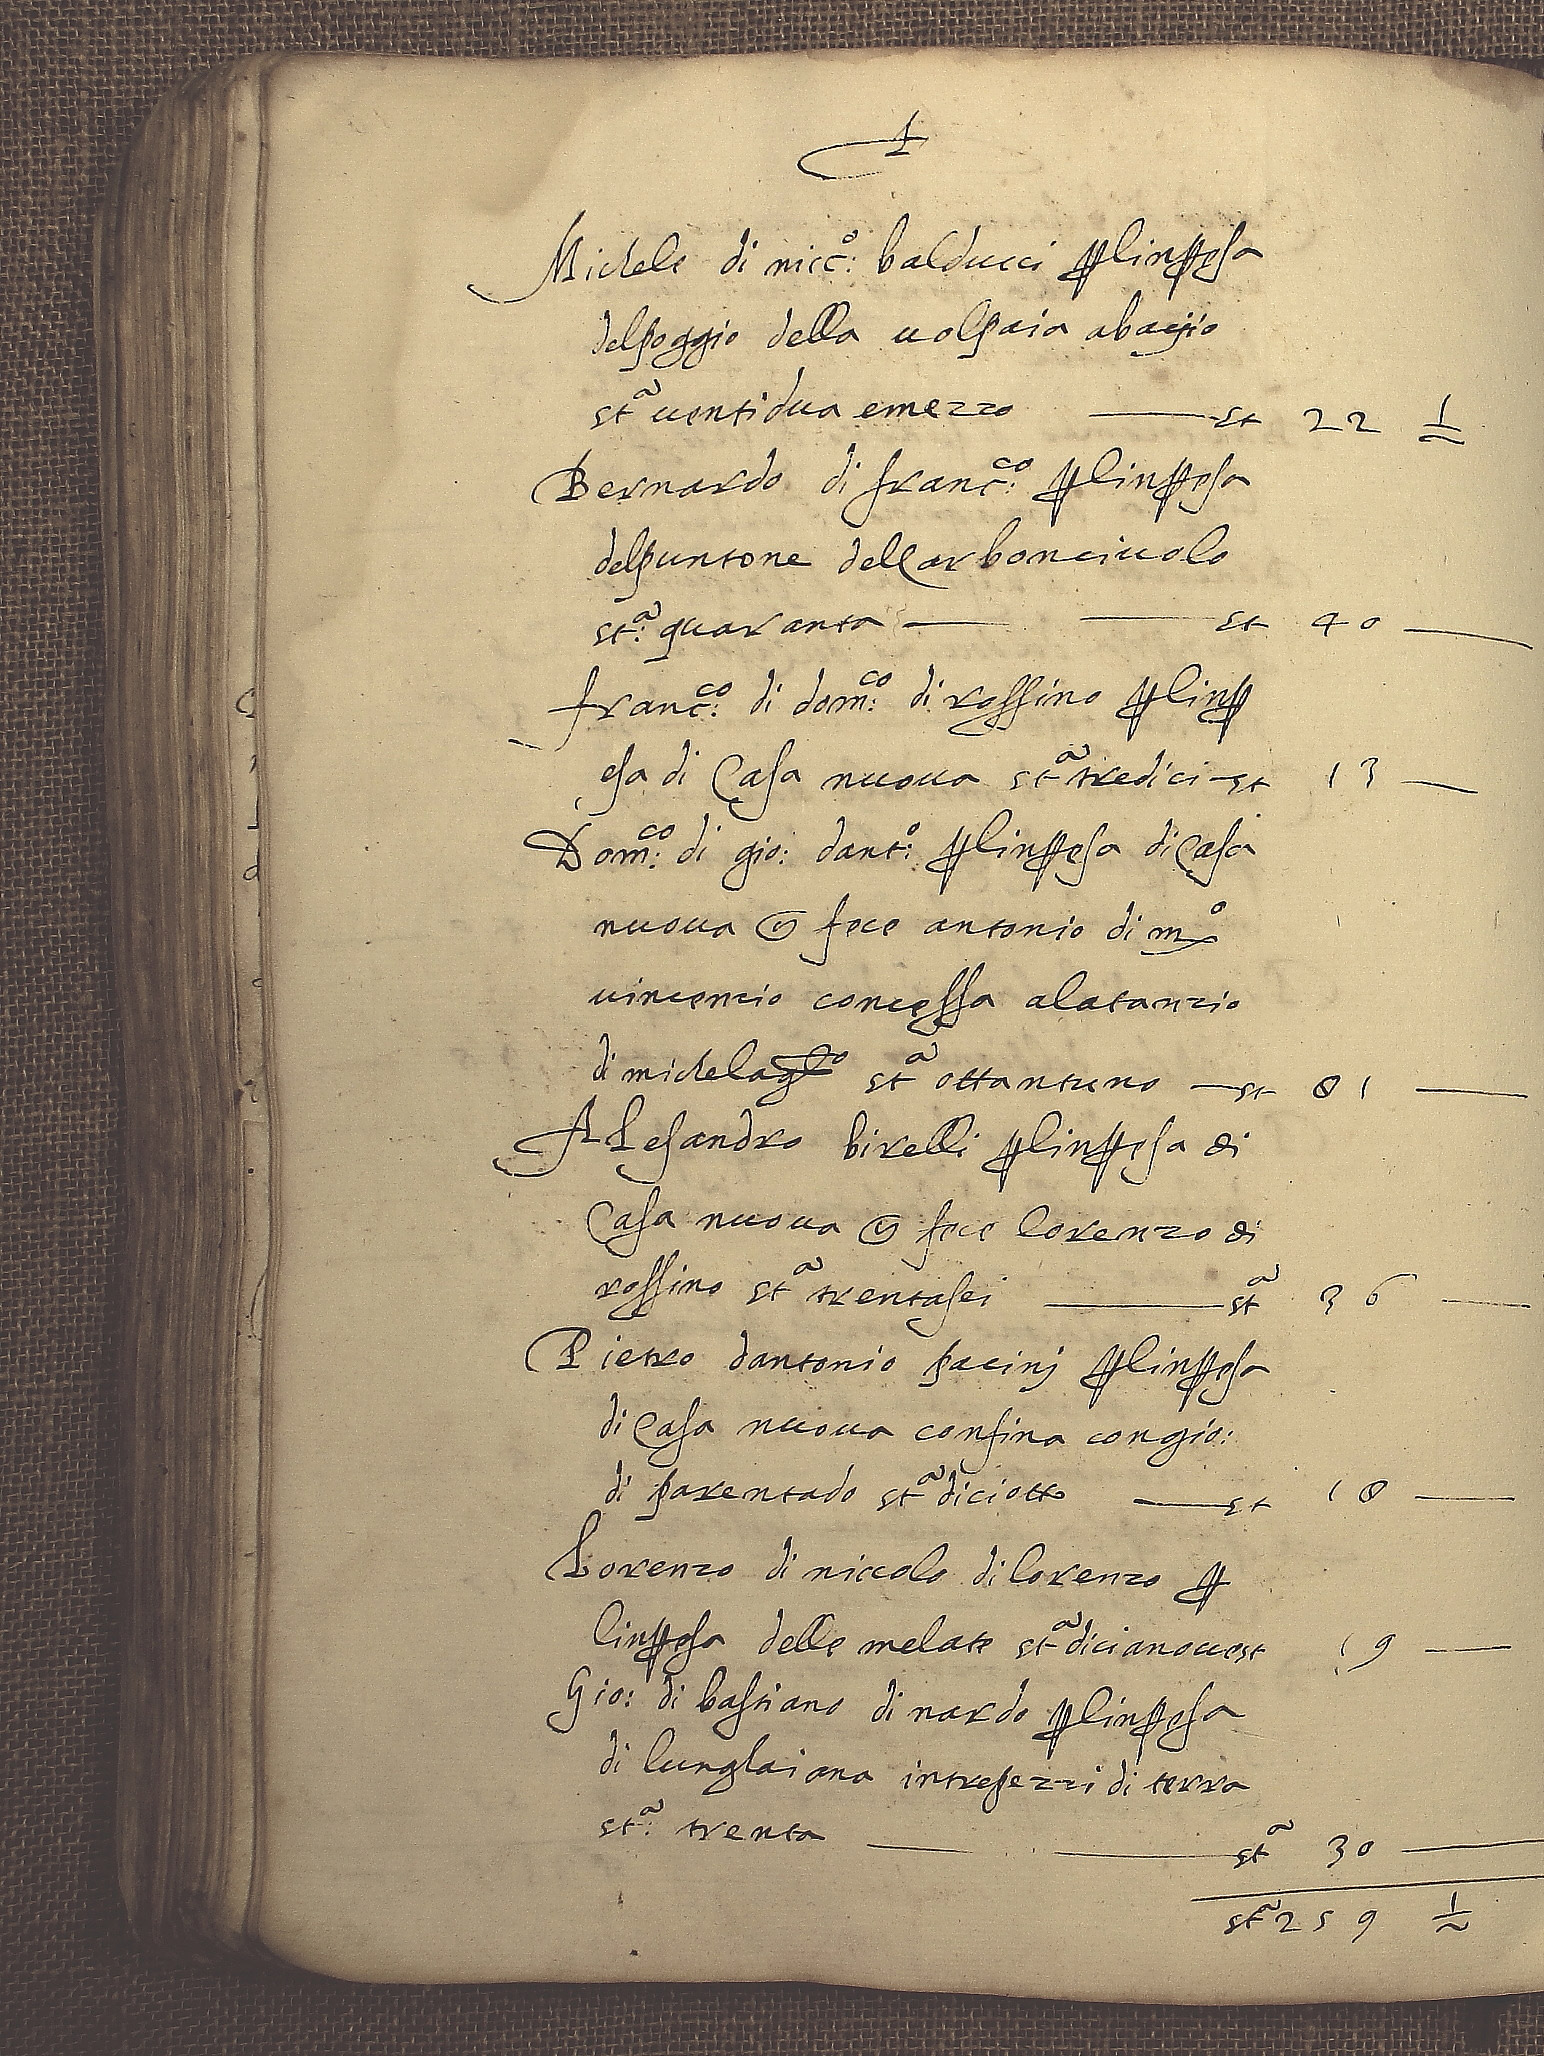 Michele di nicc.º: balducci p̱ linp̱esa
delpoggio della uolpaia abagio
stª uentidua emezzo —— st 22 ½
Bernardo di franc.co: p̱ linp̱esa
delpuntone dellarbonciuolo
st:ª quaranta —— st 40 —
franc:co di dom:co di rossino p̱ linp̱
esa di Casa nuoua stª tredici – st 13 —
Dom:co di gio: dant:º p̱ linp̱esa di Casa
nuoua fece antonio di mº
uincenzio concessa alatanzio
di michelaglo stª ottantuno — st 81 —
Alesandro birelli p̱ linp̱esa di
Casa nuoua fece lorenzo di
rossino stª trentasei —— stª 36 —
Pietro dantonio pacinj p̱ linp̱esa
di Casa nuoua confina congio:
di parentado stª diciotto —— st 18 —
Lorenzo di niccolo di lorenzo p̱
linp̱esa delle melate stª dicianoue st 19 —
Gio: di bastiano di nardo p̱ linp̱esa
di intrepezzi di terra
st:ª trenta —— stª 30 —
stª 259 ½